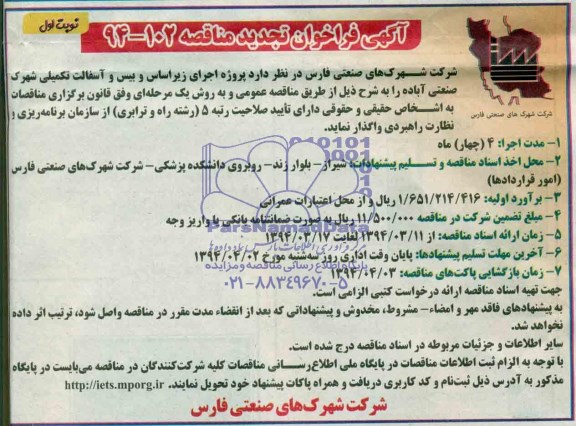 نوبت اول
آگهی فراخوان تجدید مناقصه ۱۰۲-۹۴
شرکت شهرک های صنعتی فارس
شرکت شهرک‌های صنعتی فارس در نظر دارد پروژه اجرای زیراساس و بیس و آسفالت تکمیلی شهرک
صنعتی آباده را به شرح ذیل از طریق مناقصه عمومی و به روش یک مرحله‌ای وفق قانون برگزاری مناقصات
به اشخاص حقیقی و حقوقی دارای تأیید صلاحیت رتبه ۵ (رشته راه و ترابری) از سازمان برنامه‌ریزی و
نظارت راهبردی واگذار نماید.
۱- مدت اجرا: ۴ (چهار) ماه
۲- محل اخذ اسناد مناقصه و تسلیم پیشنهادات: شیراز- بلوار زند- روبروی دانشکده پزشکی- شرکت شهرک‌های صنعتی فارس
(امور قراردادها)
۳- برآورد اولیه: ۱/۶۵۱/۲۱۴/۴۱۶ ریال و از محل اعتبارات عمرانی
۴- مبلغ تضمین شرکت در مناقصه ۱۱/۵۰۰/۰۰۰ ریال به صورت ضمانتنامه بانکی یا واریز وجه
۵- زمان ارائه اسناد مناقصه: از ۱۳۹۴/۰۳/۱۱ لغایت ۱۳۹۴/۰۳/۱۷
۶- آخرین مهلت تسلیم پیشنهادها: پایان وقت اداری روز سه‌شنبه مورخ ۱۳۹۴/۰۴/۰۲
۷- زمان بازگشایی پاکت‌های مناقصه: ۱۳۹۴/۰۴/۰۳
جهت تهیه اسناد مناقصه ارائه درخواست کتبی الزامی است.
به پیشنهادهای فاقد مهر و امضاء- مشروط، مخدوش و پیشنهاداتی که بعد از انقضاء مدت مقرر در مناقصه واصل شود، ترتیب اثر داده
نخواهد شد.
سایر اطلاعات و جزئیات مربوطه در اسناد مناقصه درج شده است.
با توجه به الزام ثبت اطلاعات مناقصات در پایگاه ملی اطلاع‌رسانی مناقصات کلیه شرکت‌کنندگان در مناقصه می‌بایست در پایگاه
مذکور به آدرس ذیل ثبت‌نام و کد کاربری دریافت و همراه پاکات پیشنهاد خود تحویل نمایند. http://iets.mporg.ir
شرکت شهرک‌های صنعتی فارس
ParsNamadData
پایگاه اطلاع رسانی مناقصه و مزایده
۰۲۱-۸۸۳۴۹۶۷۰-۵